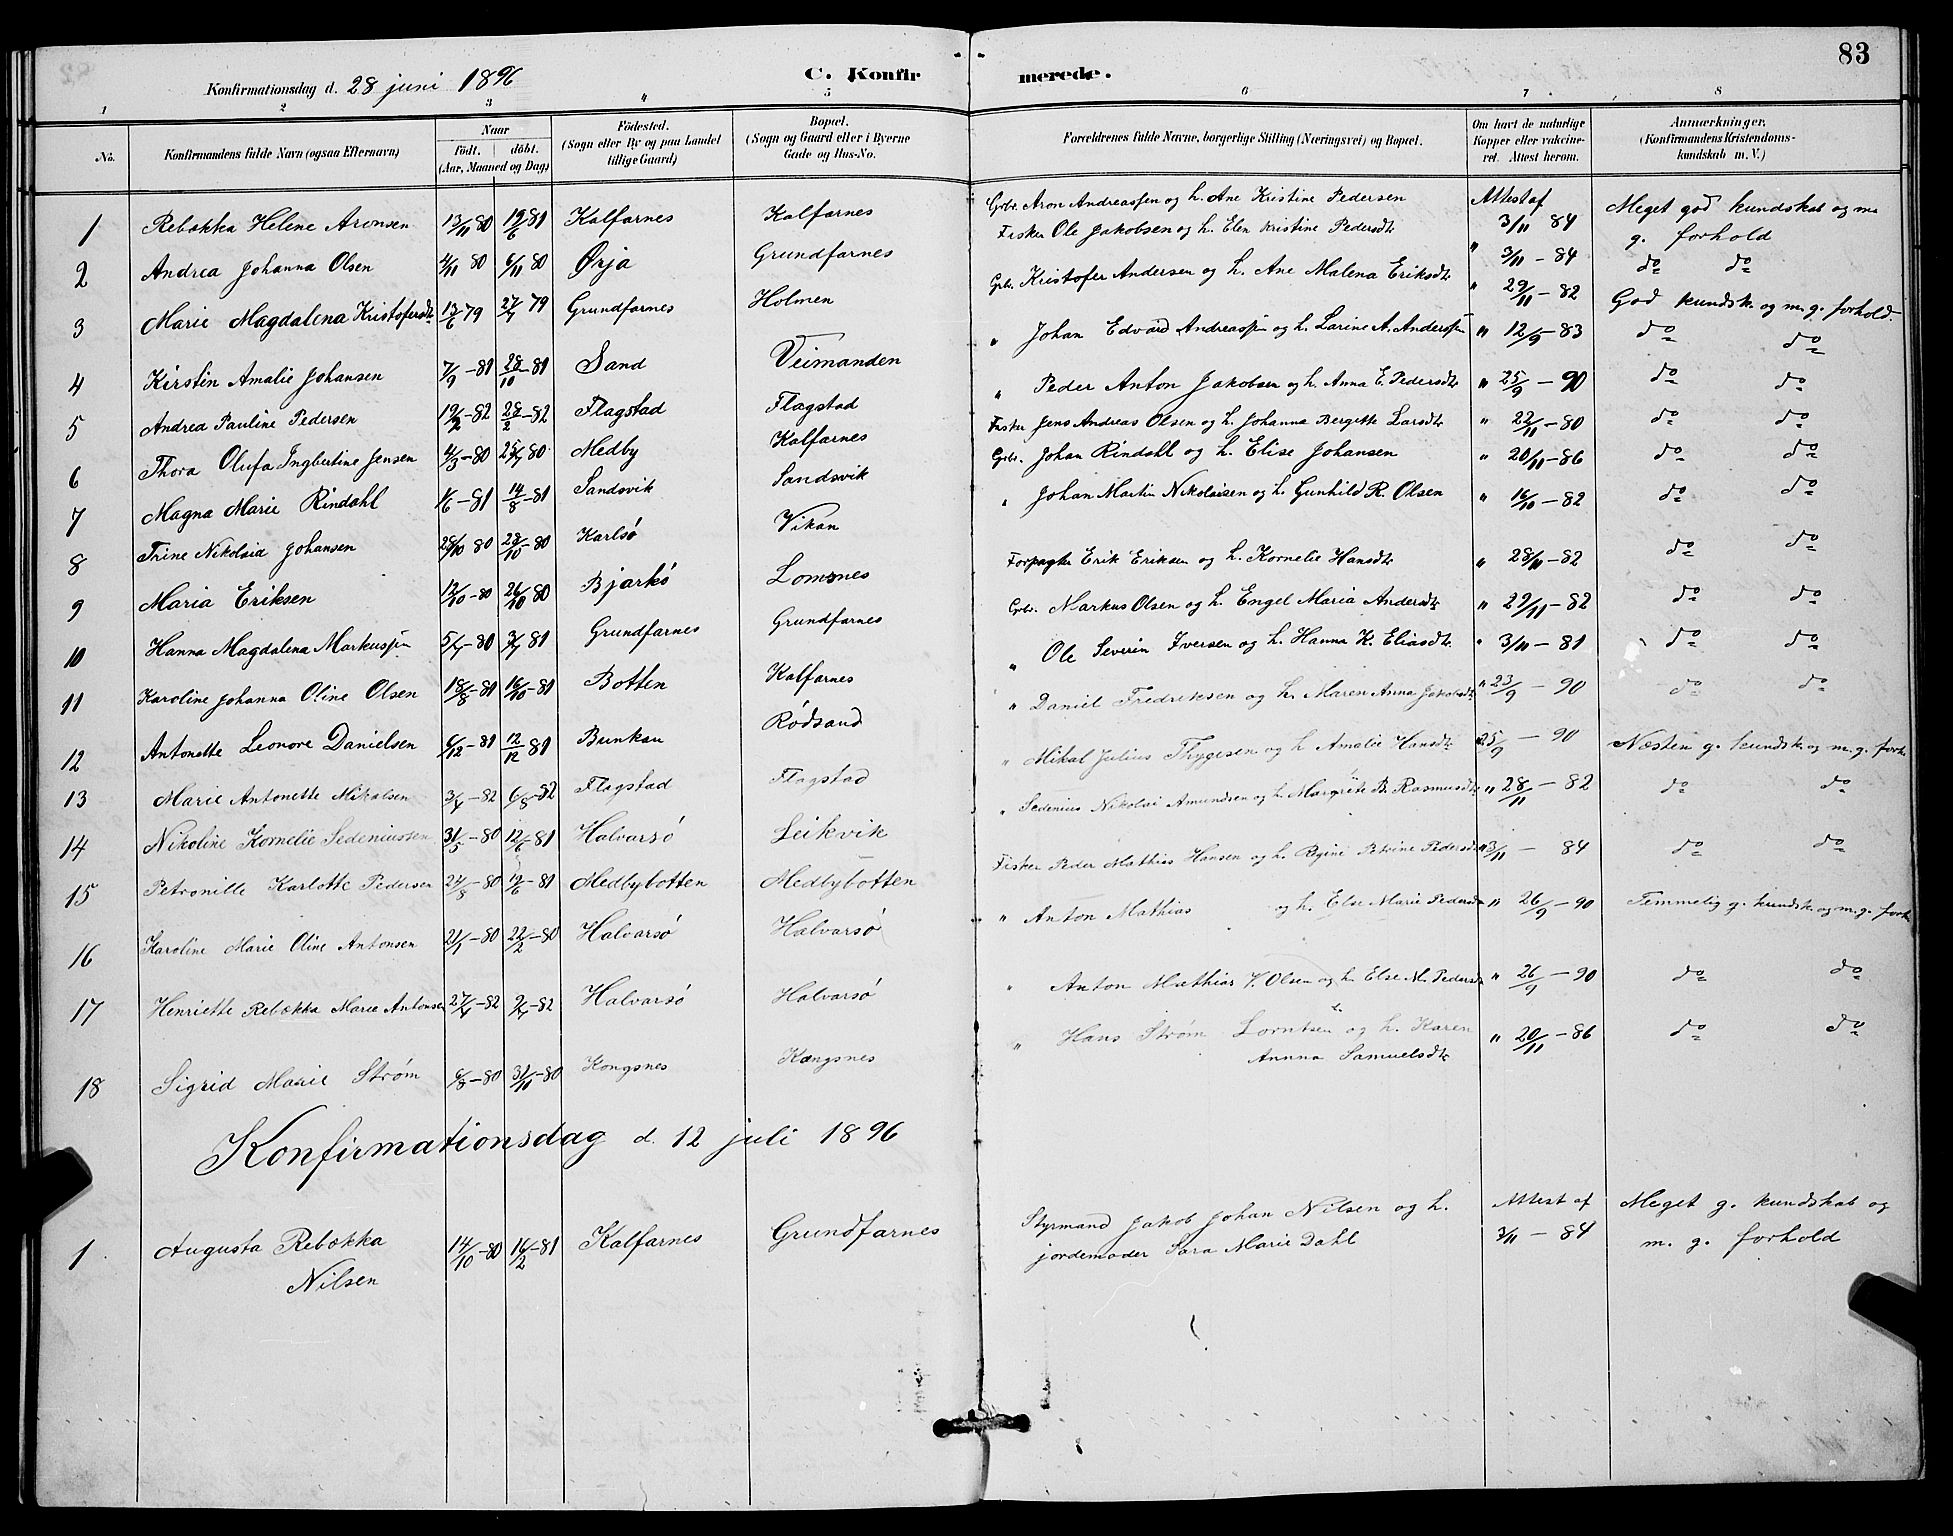 83
Konfirmationsdag d. 28 juni 1896
C. Konfirmerede.
1 2 3 4 5 6 7 8
No. Konfirmandens fulde Navn (ogsaa Efternavn) Naar født. døbt. (Aar, Maaned og Dag) Födested. (Sogn eller By og paa Landet tillige Gaard) Bopæl. (Sogn og Gaard eller i Byerne Gade og Hus-No. Forældrenes fulde Navne, borgerlige Stilling (Næringsvei) og Bopæl. Om havt de naturlige Kopper eller vakcineret. Attest herom. Anmærkninger. (Konfirmandens Kristendomskundskab m. V.)
1 Rebekka Helene Aronsen 13/11 80 19/6 81 Kalfarnes Kalfarnes Grbr. Aron Andreassen og h. Ane Kristine Pedersen Attest af 3/11 84 Meget god kundskab og m. g. forhold
2 Andrea Johanna Olsen 4/11 80 6/11 80 Ørja Grundfarnes Fisker Ole Jakobsen og h. Elen Kristine Pedersdt. " 3/11 - 84 do do
3 Marie Magdalena Kristofersdt. 13/6 79 27/7 79 Grundfarnes Holmen Grbr. Kristofer Andersen og h. Ane Malena Eriksdt. " 29/11 - 82 God kundsk. og m. g. forhold.
4 Kirstin Amalie Johansen 7/9 - 81 28/10 - 81 Sand Veimanden " Johan Edvard Andreassen og h. Larine A. Anderssen " 12/9 - 83 do do
5 Andrea Pauline Pedersen 19/2 - 82 28/2 - 82 Flagstad Flagstad " Peder Anton Jakobsen og h. Anna E. Pedersdt. " 25/9 - 90 do do
6 Thora Olufa Ingbertine Jensen 4/3 - 80 25/7 80 Medby Kalfarnes Fisker Jens Andreas Olsen og h. Johanna Bergitte Larsdt. " 22/11 - 80 do do
7 Magna Marie Rindahl 1/6 - 81 14/8 - 81 Sandsvik Sandsvik Grbr. Johan Rindahl og h. Elise Johansen " 20/11 - 86 do do
8 Trine Nikolaia Johansen 28/10 80 28/10 - 80 Karlsö Vikan " Johan Martin Nikolaisen og h. Gunhild R. Olsen " 16/10 - 82 do do
9 Maria Eriksen 12/10 - 80 26/10 80 Bjarkö Lomsnes Forpagter Erik Eriksen og h. Kornelie Hansdt. " 28/11 - 82 do do
10 Hanna Magdalena Markussen 5/7 - 80 3/7 81 Grundfarnes Grundfarnes Grbr. Markus Olsen og h. Engel Maria Andersdt. " 29/11 - 82 do do
11 Karoline Johanna Oline Olsen 18/8 - 81 16/10 - 81 Botten Kalfarnes " Ole Severin Iversen og h. Hanna K. Eliasdt. " 3/11 - 81 do do
12 Antonette Leonore Danielsen 6/12 - 81 12/12 81 Bunkan Rödsand " Daniel Fredriksen og h. Maren Anna Jakobsdt. " 23/9 - 90 do do
13 Marie Antonette Mikalsen 3/7 - 82 6/8 - 82 Flagstad Flagstad " Mikal Julius Thygesen og h. Amalie Hansdt. 25/9 - 90 Næsten g. kundsk. og m. g. forh.
14 Nikoline Kornelie Sedeniussen 31/5 - 80 12/6 - 81 Halvarsö Leikvik " Sedenius Nikolai Amundsen og h. Margrete B. Rasmusdt. " 28/11 - 82 do do
15 Petronille Karlotte Pedersen 24/8 - 80 19/6 - 81 Medbybotten Medbybotten Fisker Peder Mathias Hansen og h. Regine Petrine Pedersdt. " 3/11 - 84 do do
16 Karoline Marie Oline Antonsen 21/1 - 80 22/2 - 80 Halvarsö Halvarsö " Anton Mathias og h. Else Marie Pedersdt. " 26/9 - 90 Temmelig g. kundsk. og m. g. forh.
17 Henriette Rebekka Marie Antonsen 27/4 - 82 9/7 - 82 Halvarsö Halvarsö " Anton Mathias V. Olsen og h. Else M. Pedersdt. " 26/9 - 90 do do
18 Sigrid Marie Strøm 6/8 - 80 31/10 - 80 Kongsnes Kængsnes " Hans Strøm Lorntsen og h. Karen Annna Samuelsdt. " 20/11 - 86 do do
Konfirmationsdag d. 12 juli 1896
1 Augusta Rebekka Nilsen 14/10 - 80 16/2 - 81 Kalfarnes Grundfarnes Styrmand Jakob Johan Nilsen og h. jordemoder Sara Marie Dahl Attest af 3/11 - 84 Meget g. kundskab og m. g. forhold